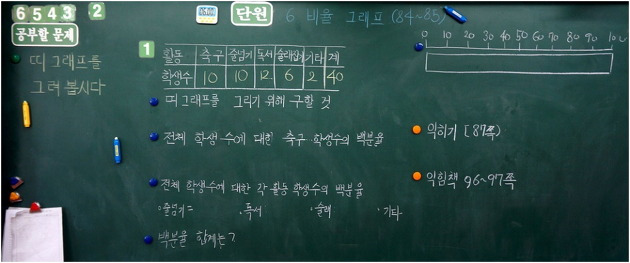 6 5 4 3 2
단원 6 비율 그래프 (84~85)
공부할 문제
띠 그래프를
그려 봅시다
1
활동 축구 줄넘기 독서 술래잡기 기타 계
학생수 10 10 12 6 2 40
띠 그래프를 그리기 위해 구할 것
전체 학생 수에 대한 축구 학생수의 백분율
전체 학생수에 대한 각 활동 학생수의 백분율
줄넘기= 독서 술래 기타
백분율 합계는?
0 10 20 30 40 50 60 70 80 90 100
익히기 [87쪽)
익힘책 96~97쪽